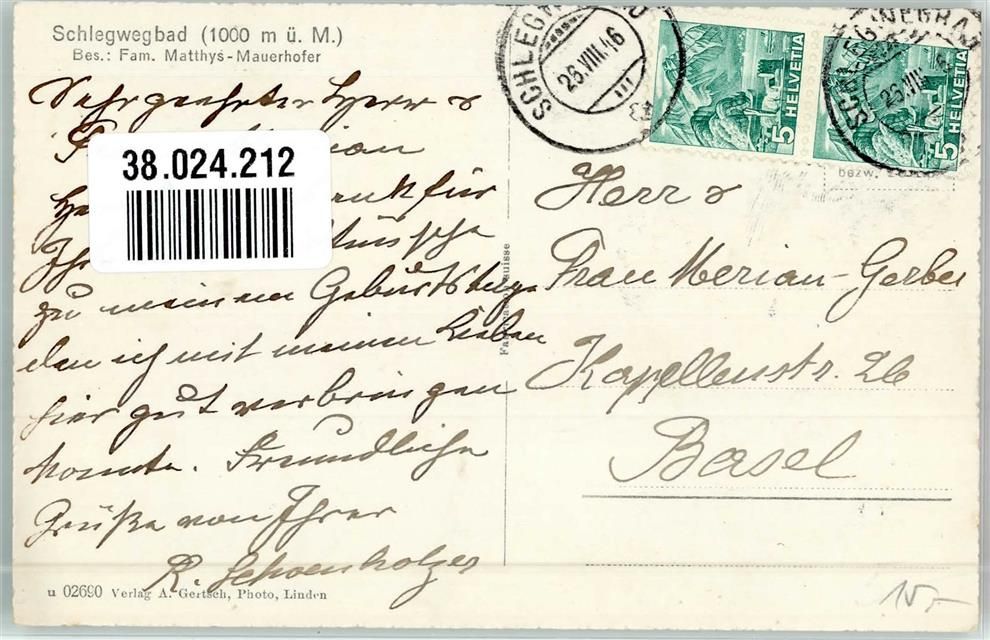 Schlegwegbad (1000 m ü. M.)
Bes.: Fam. Matthys-Mauerhofer
Sehr geehrter Herr &
38.024.212
für
zu meinem Geburtstage
den ich mit meinen Lieben
hier gut verbringen
konnte. Freundliche
Grüße von Ihrer
R. Schoenholzer
u 02690 Verlag A. Gertsch, Photo, Linden
26.VIII.46
5 HELVETIA
5 HELVETIA
bezw.
Herr &
Frau Merian-Gerber
Kapellenstr. 26
Basel
15.-